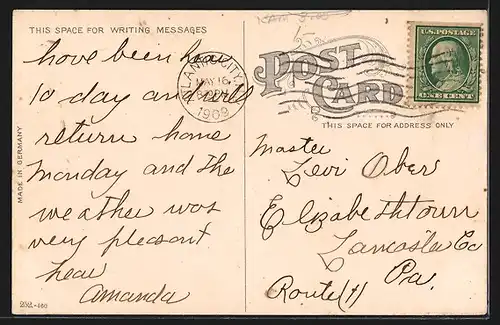 THIS SPACE FOR WRITING MESSAGES
have been hear
10 day and will
return home
Monday and the
weather was
very pleasant
hear
Amanda
MADE IN GERMANY
252.-460
CITY
MAY 16
1909
POST
CARD
U.S. POSTAGE
ONE CENT
THIS SPACE FOR ADDRESS ONLY
Master
Levi Ober
Elizabethtown
Lancaster Co
Pa.
Route (1)